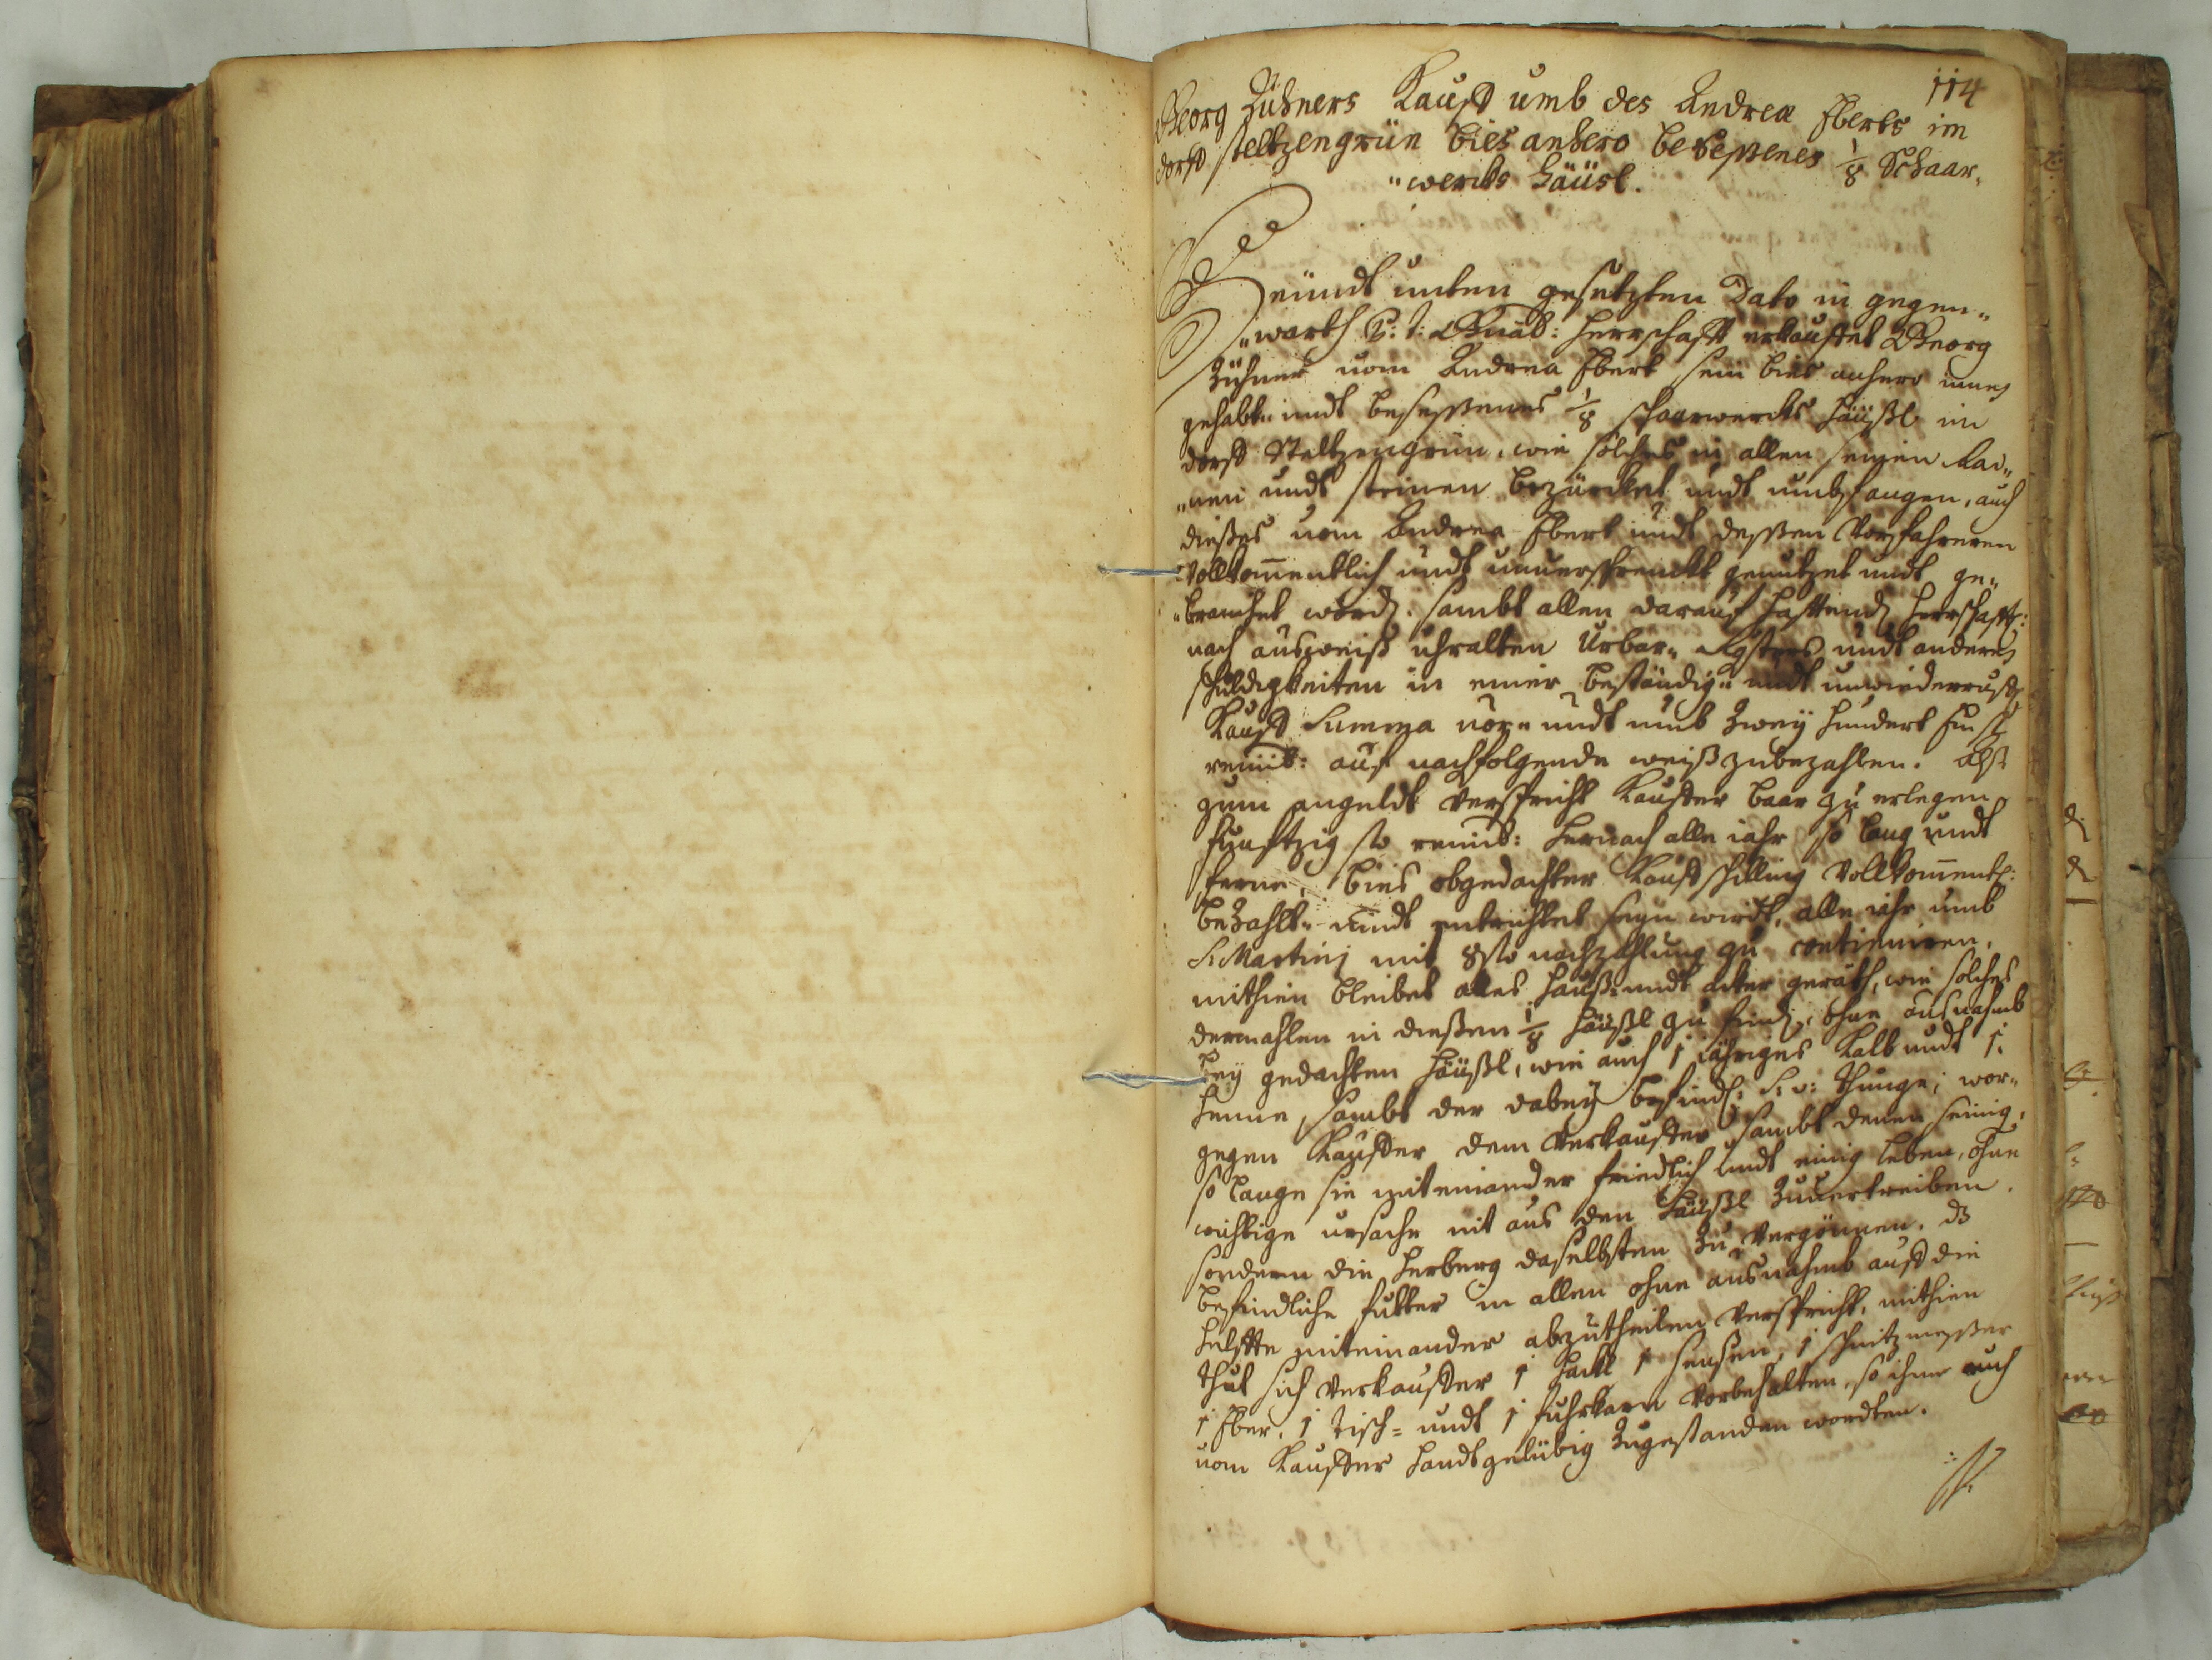 114
Georg Zühners Kauff umb des Andrea Eberts im
dorff steltzengrün bies anhero beseßenes 1/8 Schaar„
„wercks häüsl.
Heündt unten gesetzten Dato in gegen„
„warth P: t: Gnäd: Herrschafft erkauffet Georg
Zühner vom Andrea Ebert sein bies anhero innen
gehabt„ undt beseßenes 1/8 schaarwercks häüßl im
dorff Steltzengrün, wie solches in allen seinen Rai„
„nen undt steinen bezürcket undt umbfangen, auch
dießes vom Andrea Ebert undt deßen Vorfahreren
Vollkom̅entlich undt unverschrenckt genutzet undt ge„
„brauchet word. sambt allen darauf hafftend herrschafft:
nach ausweiß uhralten Urbar„ Rgsters undt anderen
schuldigkeiten in einer beständig„ undt unwiederrufl
Kauff Summa vor„ undt umb Zweÿ hundert
reinis: auf nachfolgende weiß zubezahlen. Alß
zum angeldt verspricht Kauffer baar zu erlegen
funfftzig fl reinis: hernach alle iahr so lang undt
ferne, bies obgedachter Kauffschilling Vollkom̅entl:
beZahlt„ undt entrichtet seyn wirdt, alle iahr umb
S: Martini mit 8 fl nachzahlung zu continuiren.
mithien bleibet alles hauß„ undt acker geräth, wie solches
dermahlen in dießen 1/8 häüßl zu find, ohne ausnahmb
beÿ gedachten häüßl, wie auch 1 jähriges Kalb undt 1.
henne, sambt der dabeÿ befindl: S: v: thunge; wor„
gegen Kauffer dem Verkauffer sambt denen seinig,
so lange sie miteinander friedlich undt einig leben, ohne
wichtige ursache nit aus den häüßl Zuvertreiben.
sondern die Herberg daselbsten Zu Vergönnen. dz
befindliche futter in allen ohne ausnahmb auff die
helffte miteinander abzutheilen verspricht, mithien
thut sich Verkauffer 1 hackl 1 sensen, 1 schnitzmeßer
1 Eber, 1 Tisch= undt 1 fuhrkarn Vorbehalten, so ihme auch
vom Kauffer handtgelübig Zugestanden wordten.